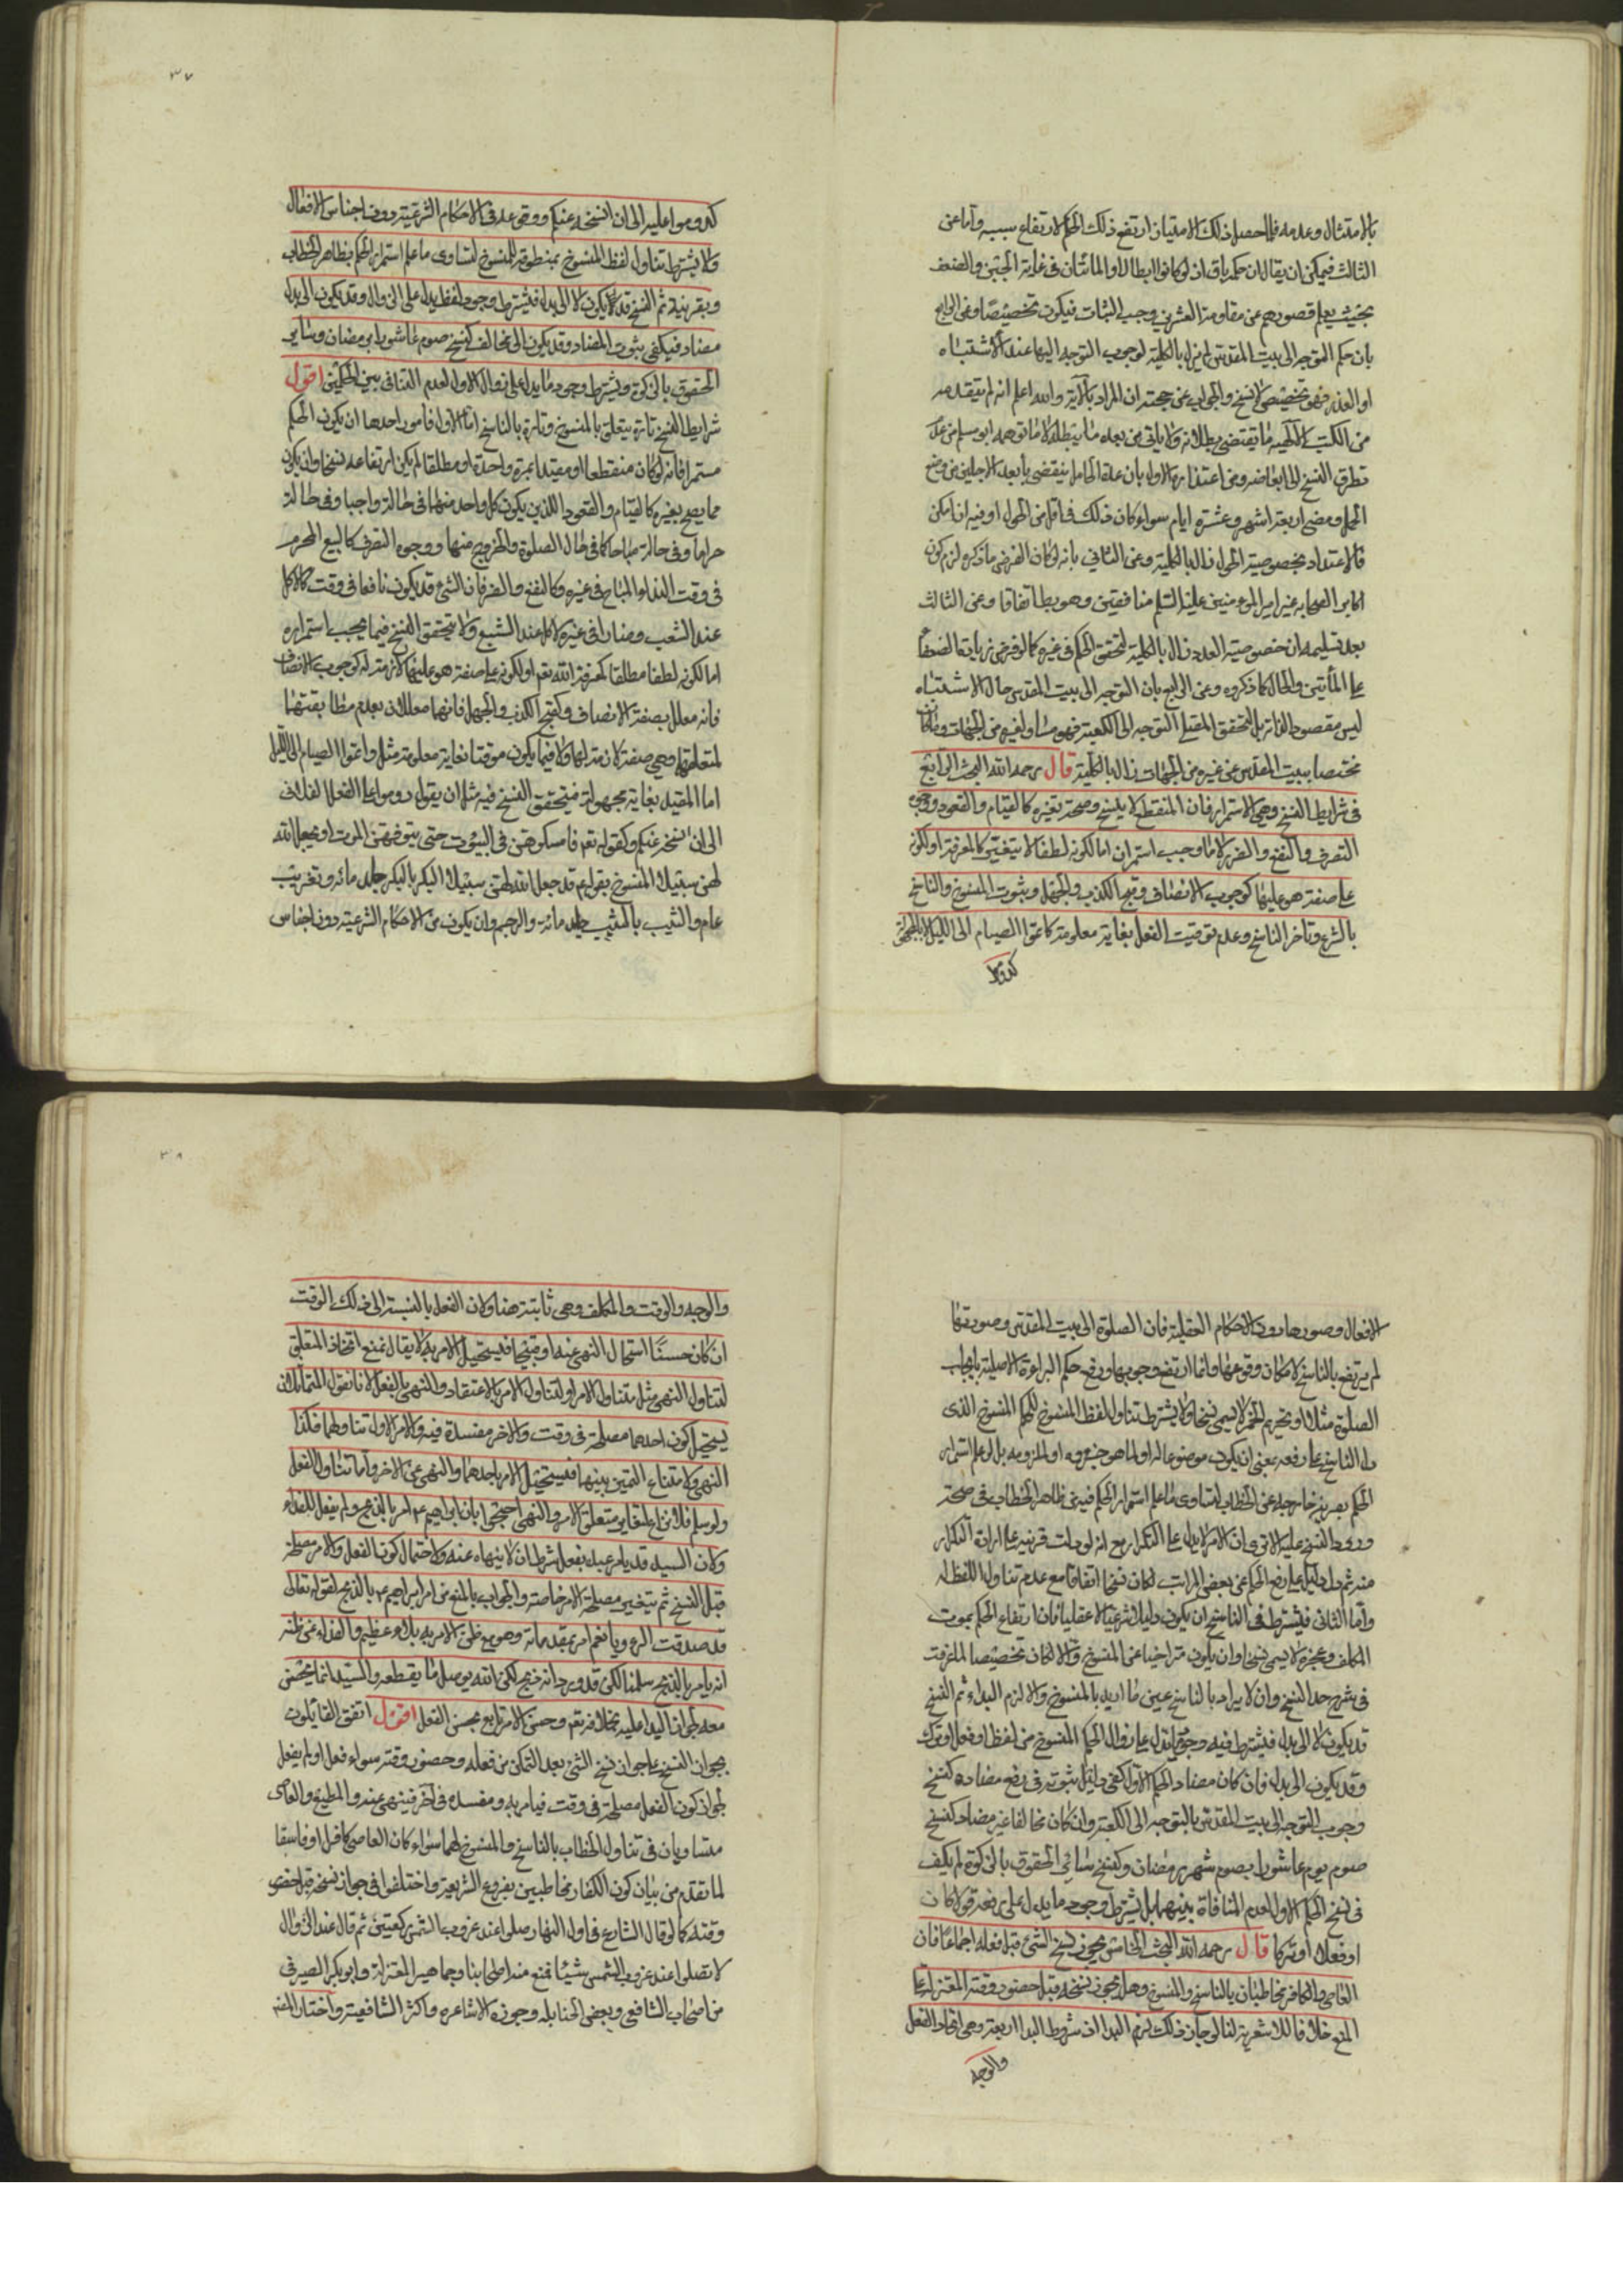 بالامتثال وعدمه فلما حصل ذلك الامتياز ارتفع ذلك الحكم لارتفاع سببه واما عن
الثالث فيمكن ان يقال ان حكمه باق اذ لو كانوا ابطالا والمائتان في غاية الجبن والضعف
بحيث يعلم قصورهم عن مقاومة العشرين وجب الثبات فيكون تخصيصا وعن الرابع
بان حكم التوجه الى بيت المقدس لم يزل بالكلية لوجوب التوجه اليها عند الاشتباه
او العذر فهو تخصيص لا نسخ والجواب عن حجته ان المراد بالآية والله اعلم انه لم يتقدمه
من الكتب الالهية ما يقتضي بطلانه ولا ياتي من بعده ما يبطله لا ما توهمه ابو مسلم من عدم
تطرق النسخ الى ابعاضه وعن اعتذاره الاول بان عدة الحامل ينقضي بابعد الاجلين من وضع
الحمل ومضي اربعة اشهر وعشرة ايام سواء كان ذلك في اقل من الحول او فيه ان امكن
فالاعتداد بخصوصية الحول زال بالكلية وعن الثاني بانه لو كان الغرض ما ذكره لزم كون
اكابر الصحابة غير امير المؤمنين عليه السلم منافقين وهو بط اتفاقا وعن الثالث
بعد تسليمه ان خصوصية العدد زال بالكلية لتحقق الحكم في غيره كما لو فرض زيادة الضعفاء
على المأتين والحال كما ذكروه وعن الرابع بان التوجه الى بيت المقدس حال الاشتباه
ليس مقصودا لذاته بل لتحقق التوجه الى الكعبة فهو مساو لغيره من الجهات وما كان
مختصا ببيت المقدس عن غيره من الجهات زال بالكلية قال رحمه الله البحث الرابع
في شرايط النسخ وهي الاستمرار فان المنقطع لا ينسخ وصحة تغيره كالقيام والقعود ووجوه
التصرف والنفع والضرر لا ما وجب استمراره اما لكونه لطفا لا يتغير كالمعرفة او لكونه
على صفة هو عليها كوجوب الانصاف وقبح الكذب والجهل وثبوت المنسوخ والناسخ
بالشرع وتاخر الناسخ وعدم توقيت الفعل بغاية معلومة كاتموا الصيام الى الليل لا بالمجهولة
كدوموا
كدوموا عليه الى ان انسخه عنكم ووقوعه في الاحكام الشرعية دون اجناس الافعال
ولا يشترط تناول لفظ المنسوخ بمنطوقه للمنسوخ لتساوي ما علم استمرار الحكم بظاهر الخطاب
وبقرينة ثم النسخ قد لا يكون لا الى بدل فيشترط وجود لفظ يدل على الزوال وقد يكون الى بدل
مضاد فيكفي ثبوت المضاد وقد يكون الى مخالف كنسخ صوم عاشورا برمضان وساير
الحقوق بالزكوة ويشترط وجود ما يدل على زوال الاول لعدم التنافي بين الحكمين اقول
شرايط النسخ تارة يتعلق بالمنسوخ وتارة بالناسخ اما الاول فامور احدها ان يكون الحكم
مستمرا فانه لو كان منقطعا او مقيدا بمرة واحدة او مطلقا لم يكن ارتفاعه نسخا وان يكون
مما يصح تغيره كالقيام والقعود اللذين يكون كل واحد منهما في حالة واجبا وفي حالة
حراما وفي حالة مباحا كما في حال الصلوة والخروج منها ووجوه التصرف كالبيع المحرم
في وقت النداء والمباح في غيره وكالنفع والضر فان الشئ قد يكون نافعا في وقت كالاكل
عند الشغب وضارا في غيره كالاكل عند الشبع ولا يتحقق النسخ فيما يجب استمراره
اما لكونه لطفا مطلقا كمعرفة الله تعم او لكونه على صفة هو عليها لازمة له كوجوب الانصاف
فانه معلل بصفة الانصاف وكقبح الكذب والجهل فانهما معللان بعدم مطابقتهما
لمتعلقهما وهي صفة لازمة لهما ولا فيما يكون موقتا بغاية معلومة مثل واتموا الصيام الى الليل
اما المقيد بغاية مجهولة فيتحقق النسخ فيه مثل ان يقول دوموا على الفعل الفلاني
الى ان انسخه عنكم وكقوله تعم فامسكوهن في البيوت حتى يتوفيهن الموت او يجعل الله
لهن سبيلا المنسوخ بقوله عم قد جعل الله لهن سبيلا البكر بالبكر جلد مائة وتغريب
عام والثيب بالثيب جلد مائة والرجم وان يكون من الاحكام الشرعية دون اجناس
الافعال وصورها ودون الاحكام العقلية فان الصلوة الى بيت المقدس وصورتها
لم يرتفع بالناسخ لامكان وقوعها وانما ارتفع وجوبها ورفع حكم البراءة الاصلية بايجاب
الصلوة مثلا او تحريم الخمر لا يسمى نسخا ولا يشترط تناول لفظ المنسوخ للحكم المنسوخ الذي
دل الناسخ على رفعه بمعنى ان يكون موضوعا له او لما هو جزوه او لملزومه بل لو علم استمرار
الحكم بقرينة خارجة عن الخطاب لتساوي ما علم استمرار الحكم فيه من ظاهر الخطاب في صحة
ورود النسخ عليه الا ترى ان الامر لا يدل على التكرار مع انه لو دلت قرينة على ارادة التكرار
منه ثم دل دليل على رفع الحكم عن بعض المراتب لكان نسخا اتفاقا مع عدم تناول اللفظ له
واما الثاني فيشترط في الناسخ ان يكون دليلا شرعيا لا عقليا فان ارتفاع الحكم بموت
المكلف وعجزه لا يسمى نسخا وان يكون متراخيا عن المنسوخ والا لكان تخصيصا لما عرفت
في شرح حد النسخ وان لا يراد بالناسخ عين ما اريد بالمنسوخ والا لزم البداء ثم النسخ
قد يكون لا الى بدل فيشترط فيه وجود ما يدل على زوال الحكم المنسوخ من لفظ او فعل او ترك
وقد يكون الى بدل فان كان مضادا للحكم الاول كفى دليل ثبوته في رفع مضاده كنسخ
وجوب التوجه الى بيت المقدس بالتوجه الى الكعبة وان كان مخالفا غير مضاد كنسخ
صوم يوم عاشورا بصوم شهر رمضان وكنسخ سائر الحقوق بالزكوة لم يكف
في نسخ الحكم الاول لعدم المنافاة بينهما بل يشترط وجود ما يدل على رفعه قولا كان
او فعلا او تركا قال رحمه الله البحث الخامس يجوز نسخ الشئ قبل فعله اجماعا فان
العاصي والكافر مخاطبان بالناسخ والمنسوخ وهل يجوز نسخه قبل حضور وقته المعتزلة على
المنع خلافا للاشعرية لنا لو جاز ذلك لزم البدا اذ شروط البدا اربعة وهي اتحاد الفعل
والوجه
والوجه والوقت والمكلف وهي ثابتة هنا ولان الفعل بالنسبة الى ذلك الوقت
ان كان حسنا استحال النهي عنه او قبيحا فيستحيل الامر به لا يقال نمنع اتحاد المتعلق
لتناول النهي مثل متناول الامر او لتناول الامر بالاعتقاد والنهي بالفعل لانا نقول المتماثلان
يستحيل كون احدهما مصلحة في وقت والاخر مفسدة فيه والامر الاول تناولهما فكذا
النهي ولامتناع التميز بينهما فيستحيل الامر باحدهما والنهي عن الاخر واما تناول الفعل
ولو سلم فلا نزاع لتغاير متعلق الامر والنهي احتجوا بان ابراهيم عم امر بالذبح ولم يفعل للفداء
ولان السيد قد يامر عبده بفعل بشرط ان لا ينهاه عنه ولاحتمال كون الفعل والامر مصلحة
قبل النسخ ثم يتغير مصلحة الامر خاصة والجواب بالمنع من امر ابراهيم عم بالذبح لقوله تعالى
قد صدقت الرؤيا نعم امر بمقدماته وهو مع ظن الامر به بلاء عظيم والفداء عن ظنه
انه يامر بالذبح سلمنا لكن قد ورد انه ذبح لكن الله يوصل ما يقطعه والسيد انما يحسن
معه لجواز البدا عليه بخلافه تعم وحسن الامر تابع لحسن الفعل اقول اتفق القايلون
بجواز النسخ على جواز نسخ الشئ بعد التمكن من فعله وحضور وقته سواء فعل او لم يفعل
لجواز كون الفعل مصلحة في وقت فيامر به ومفسدة في آخر فينهى عنه والمطيع والعاصي
متساويان في تناول الخطاب بالناسخ والمنسوخ لهما سواء كان العاصي كافرا او فاسقا
لما تقدم من بيان كون الكفار مخاطبين بفروع الشريعة واختلفوا في جواز نسخه قبل حضور
وقته كما لو قال الشارع في اول النهار صلوا عند غروب الشمس ركعتين ثم قال عند الزوال
لا تصلوا عند غروب الشمس شيئا فمنع منه اصحابنا وجماهير المعتزلة وابو بكر الصيرفي
من اصحاب الشافعي وبعض الحنابلة وجوزه الاشاعرة واكثر الشافعية واختار المص
٣٧
٣٨